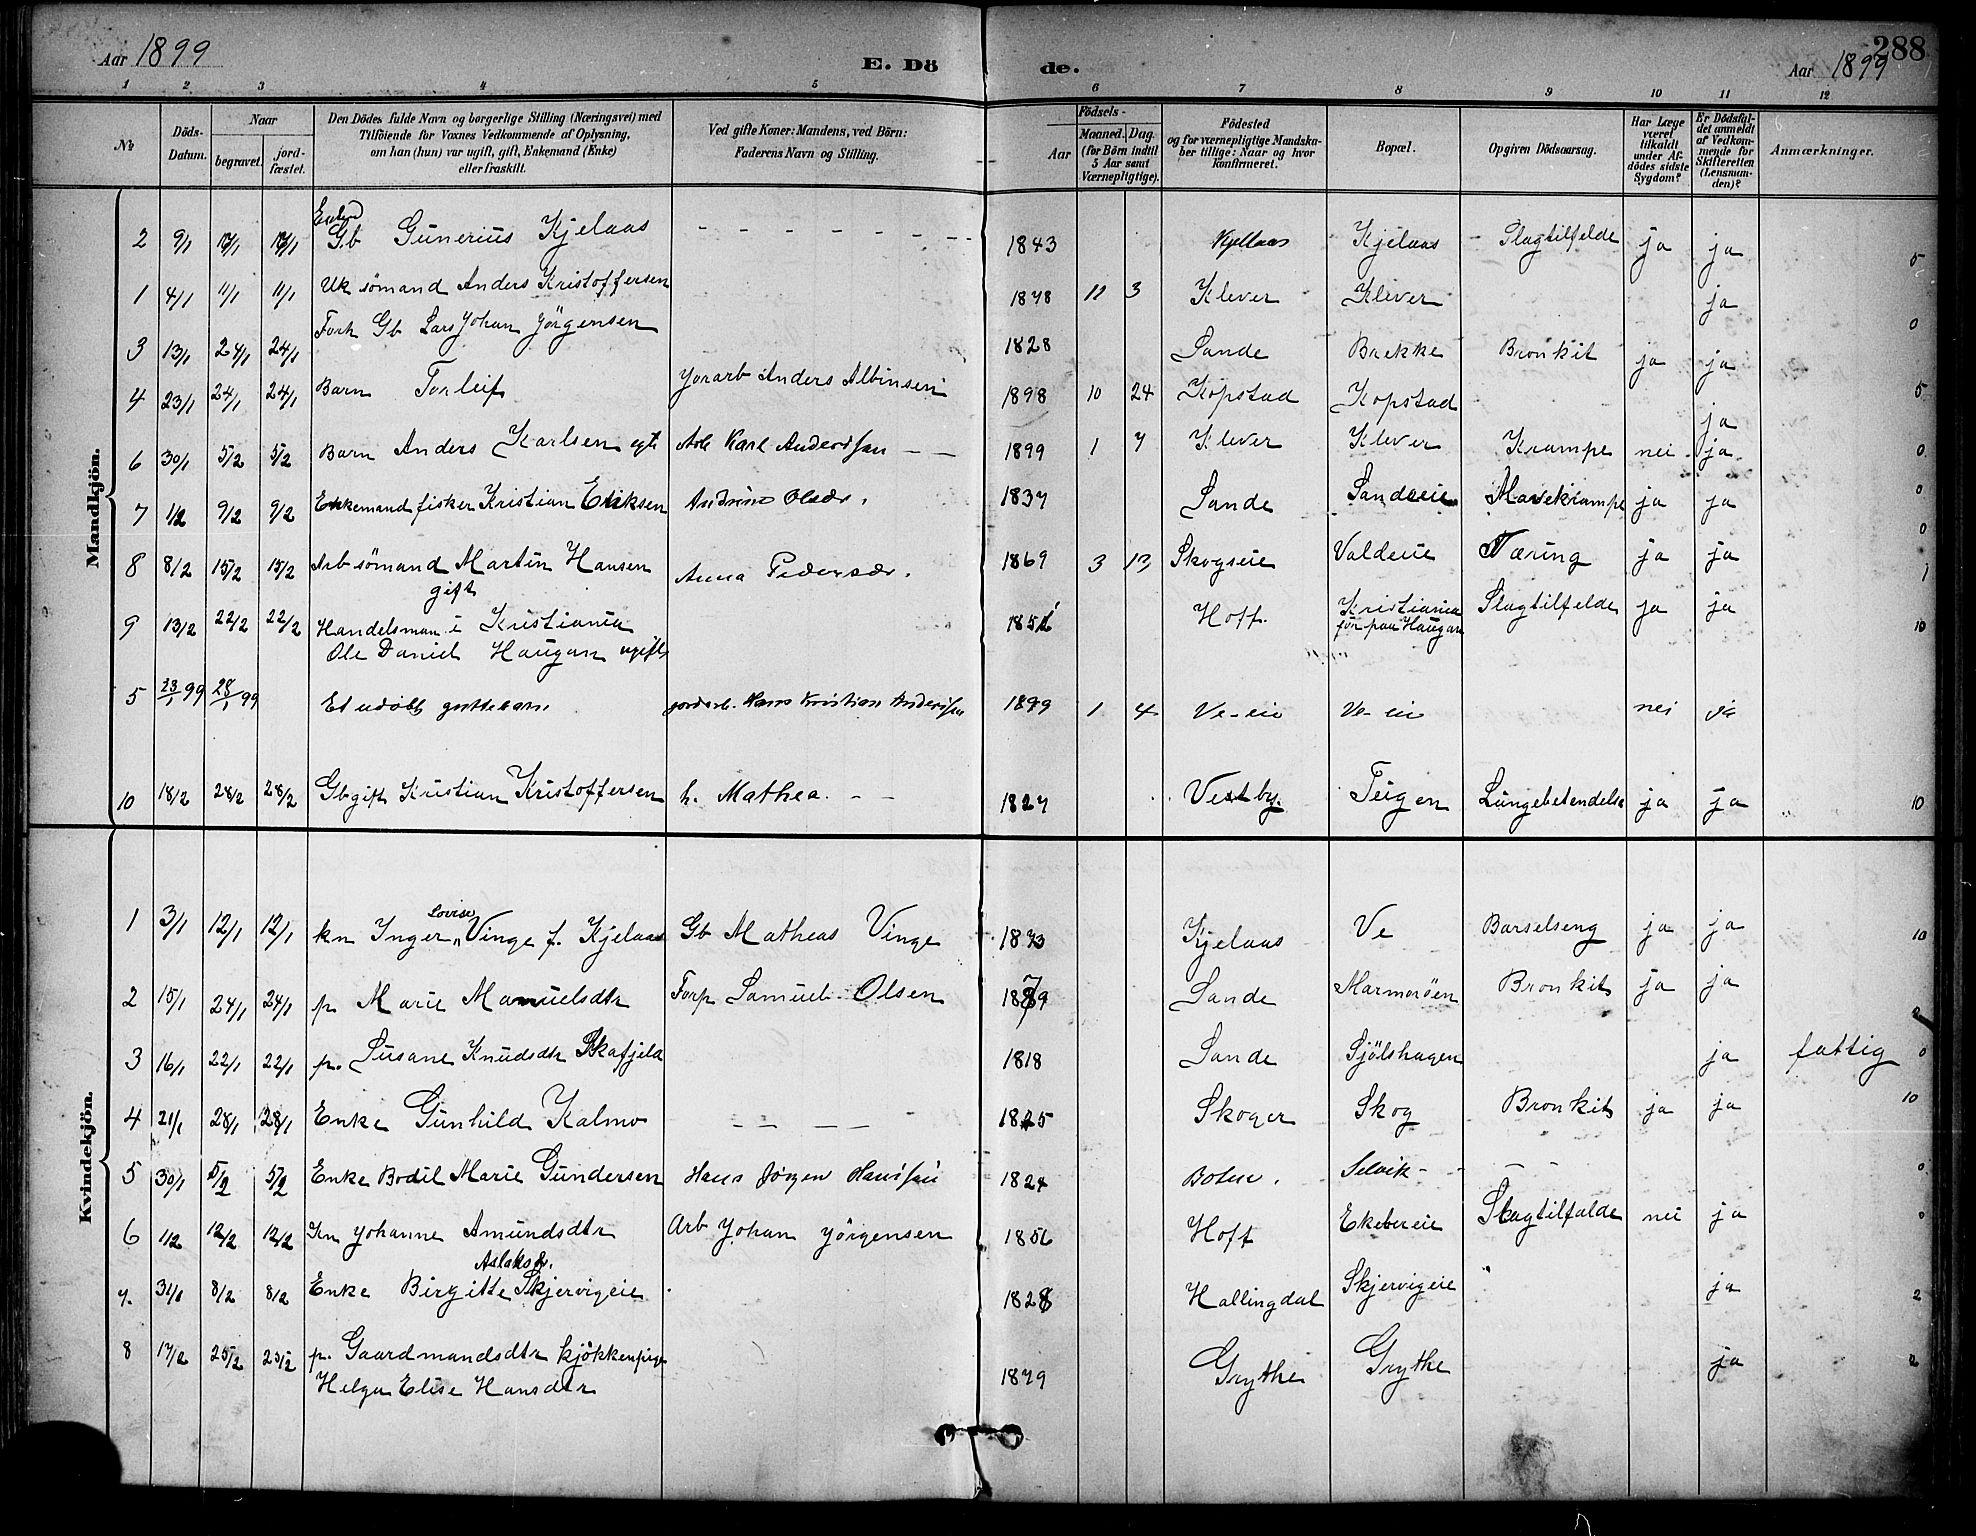 288
Aar 1899
E. Dö
de.
Aar 1899
1 2 3 4 5 6 7 8 9 10 11 12
№
Döds-Datum.
Naar
begravet.
jord-fæstet.
Den Dödes fulde Navn og borgerlige Stilling (Næringsvei) med
Tilföiende for Voxnes Vedkommende af Oplysning,
om han (hun) var ugift, gift, Enkemand (Enke)
eller fraskilt.
Ved gifte Koner: Mandens, ved Börn:
Faderens Navn og Stilling.
Födsels-
Aar
Maaned. Dag.
(for Börn indtil
5 Aar samt
Værnepligtige).
Födested
og for værnepligtige Mandska-
ber tillige: Naar og hvor
konfirmeret.
Bopæl.
Opgiven Dödsaarsag.
Har Læge
været
tilkaldt
under Af-
dödes sidste
Sygdom?
Er Dödsfal-
det anmeldt
af Vedkom-
mende for
Skifteretten
(Lensman-
den)?
Anmærkninger.
Mandkjön.
2 9/1 17/1 17/1 Gb Gunerius Kjelaas - - - - - - - - 1843 Kjellaas Kjelaas Slagtilfelde ja ja 5
1 4/1 11/1 11/1 Uk sömand Anders Kristoffersen 1878 12 3 Klever Klever ja 0
3 13/1 24/1 24/1 Forh Gb Lars Johan Jörgensen 1828 Sande Brekke Bronkit ja ja
4 23/1 24/1 24/1 Barn Torleif Jorarb Anders Albinsen 1898 10 24 Kopstad Kopstad ja 5
6 30/1 5/2 5/2 Barn Anders Karlsen egt Arb Karl Anderssen - - 1899 1 7 Klever Klever Krampe nei ja 0
7 1/2 9/2 9/2 Enkemand fisker Kristian Eriksen 1837 Sande Sandeeie Mavekrampe ja ja 0
8 8/2 15/2 15/2 Arb sömand Martin Hansen Anna Pedersdr. 1869 3 13 Skogseie Valdeie Tæring ja ja 0
gift
9 13/2 22/2 22/2 Handelsman i Kristiania 1851 Hoff. Kristiania Slagtilfelde ja ja
Ole Daniel Haugan ugift för paa Haugan 10
5 23/1 99 28/1 99 Et udöbt guttebarn jordarb. Hans Kristian Anderssen 1899 1 4 Ve-eie Ve-eie nei ja
10 18/2 28/2 28/2 Gb gift Kristian Kristoffersen h. Mathea. - - 1827 Vestby. Teigen Lungebetendelse ja ja 10
Kvindekjön.
Lovise
1 3/1 12/1 12/1 kn Inger Vinge f. Kjelaas Gb Matheas Vinge 1873 Kjelaas Ve Barselseng ja ja 10
2 15/1 24/1 24/1 p Marie Manuelsdtr Forp Samuel Olsen 1879 Sande Marmoröen Bronkit ja ja
3 16/1 22/1 22/1 p. Susane Knudsdtr Skafjeld 1818 Sande Sjölshagen ja fattig 0
4 21/1 28/1 28/1 Enke Gunhild Kalmo - - - - 1825 Skoger Skog Bronkit ja ja 10
5 30/1 5/2 5/2 Enke Bodil Marie Gundersen Hans Jörgen Hanssen 1824 Botne. Selvik - - - 0
6 1/2 12/2 12/2 Kn Johanne Amundsdtr Arb Johan Jörgensen 1856 Hoff Ekebereie Slagtilfalde nei ja 0
Aslaksd.
7. 31/1 8/2 8/2 Enke Birgitte Skjervigeie 1828 Hallingdal Skjervigeie ja 2
8 17/2 25/2 25/2 p. Gaardmandsdtr kjökkenpige 1879 Grythe Grythe ja 2
Helga Elise Hansdtr